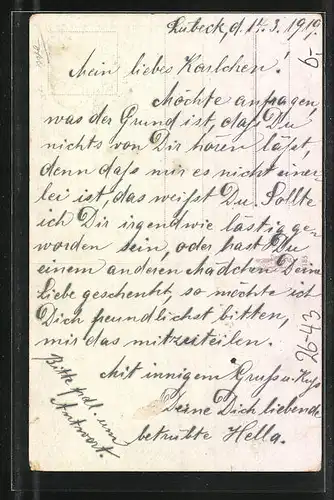 Lubeck, d. 14.3.1919.
Mein liebes Karlchen!
Möchte anfragen,
was der Grund ist, daß Du
nichts von Dir hören läßt,
denn daß mir es nicht einer
lei ist, das weißt Du. Sollte
ich Dir irgendwie lästig ge
worden sein, oder hast Du
einem anderen Mädchen Deine
Liebe geschenkt, so möchte ich
Dich freundlichst bitten,
mir das mitzuteilen.
Mit innigem Gruß u. Kuß
Deine Dich liebende
betrübte Hella.
Bitte frdl. um
Antwort.
6,-
26-43